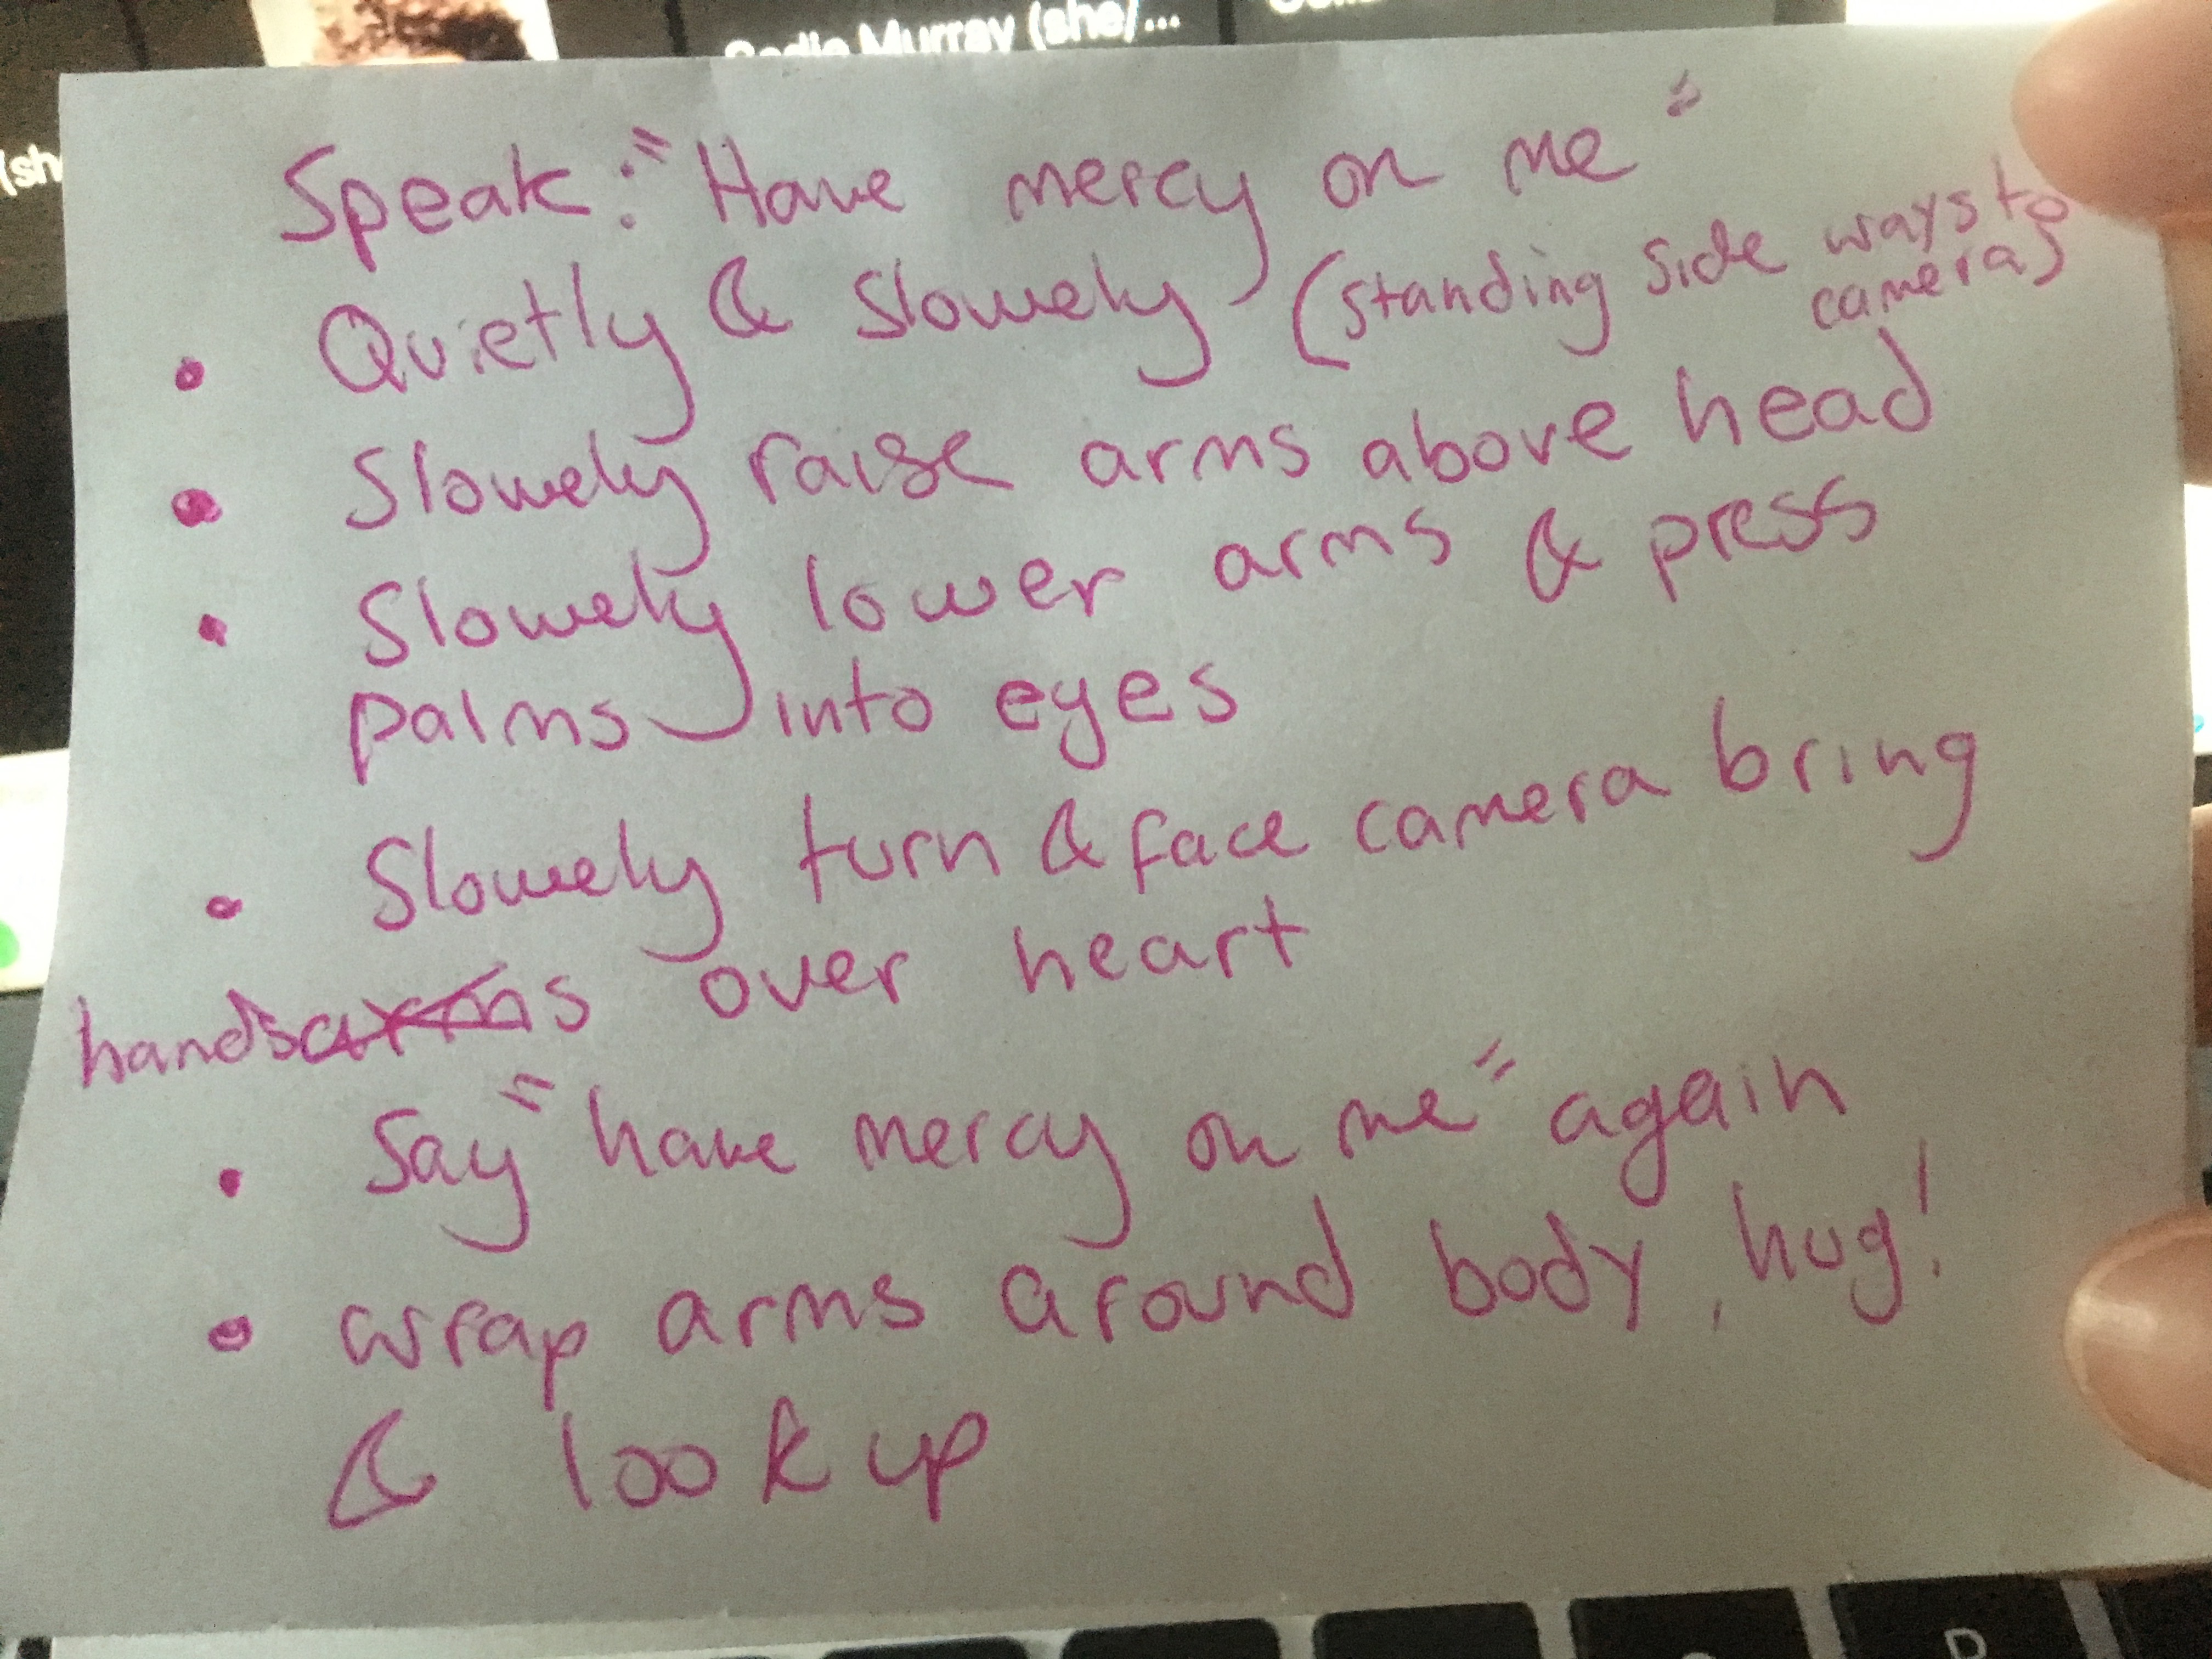 Sadie Murray (she/...
(sh
Speak: "Have mercy on me"
• Quietly & Slowely (standing side ways to
camera)
• Slowely raise arms above head
• Slowely lower arms & press
palms into eyes
• Slowely turn & face camera bring
hands arms over heart
• Say "have mercy on me" again
• wrap arms around body, hug!
& look up
D